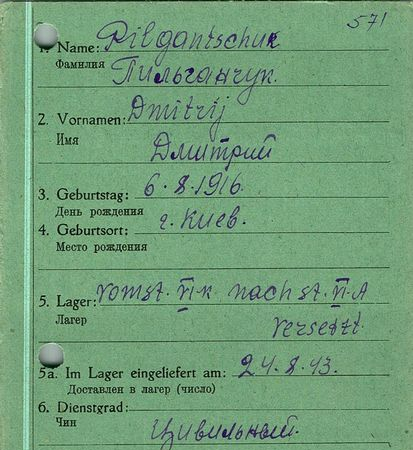 571
1. Name: Pilgantschuk
Фамилия Пильганчук.
2. Vornamen: Dmitrij
Имя Дмитрий
3. Geburtstag: 6.8.1916.
День рождения
4. Geburtsort: г. Киев.
Место рождения
5. Lager: vom st. VI-K nach st. VI-A
Лагер versetzt.
5a. Im Lager eingeliefert am: 24.8.43.
Доставлен в лагер (число)
6. Dienstgrad:
Чин Цивильный.